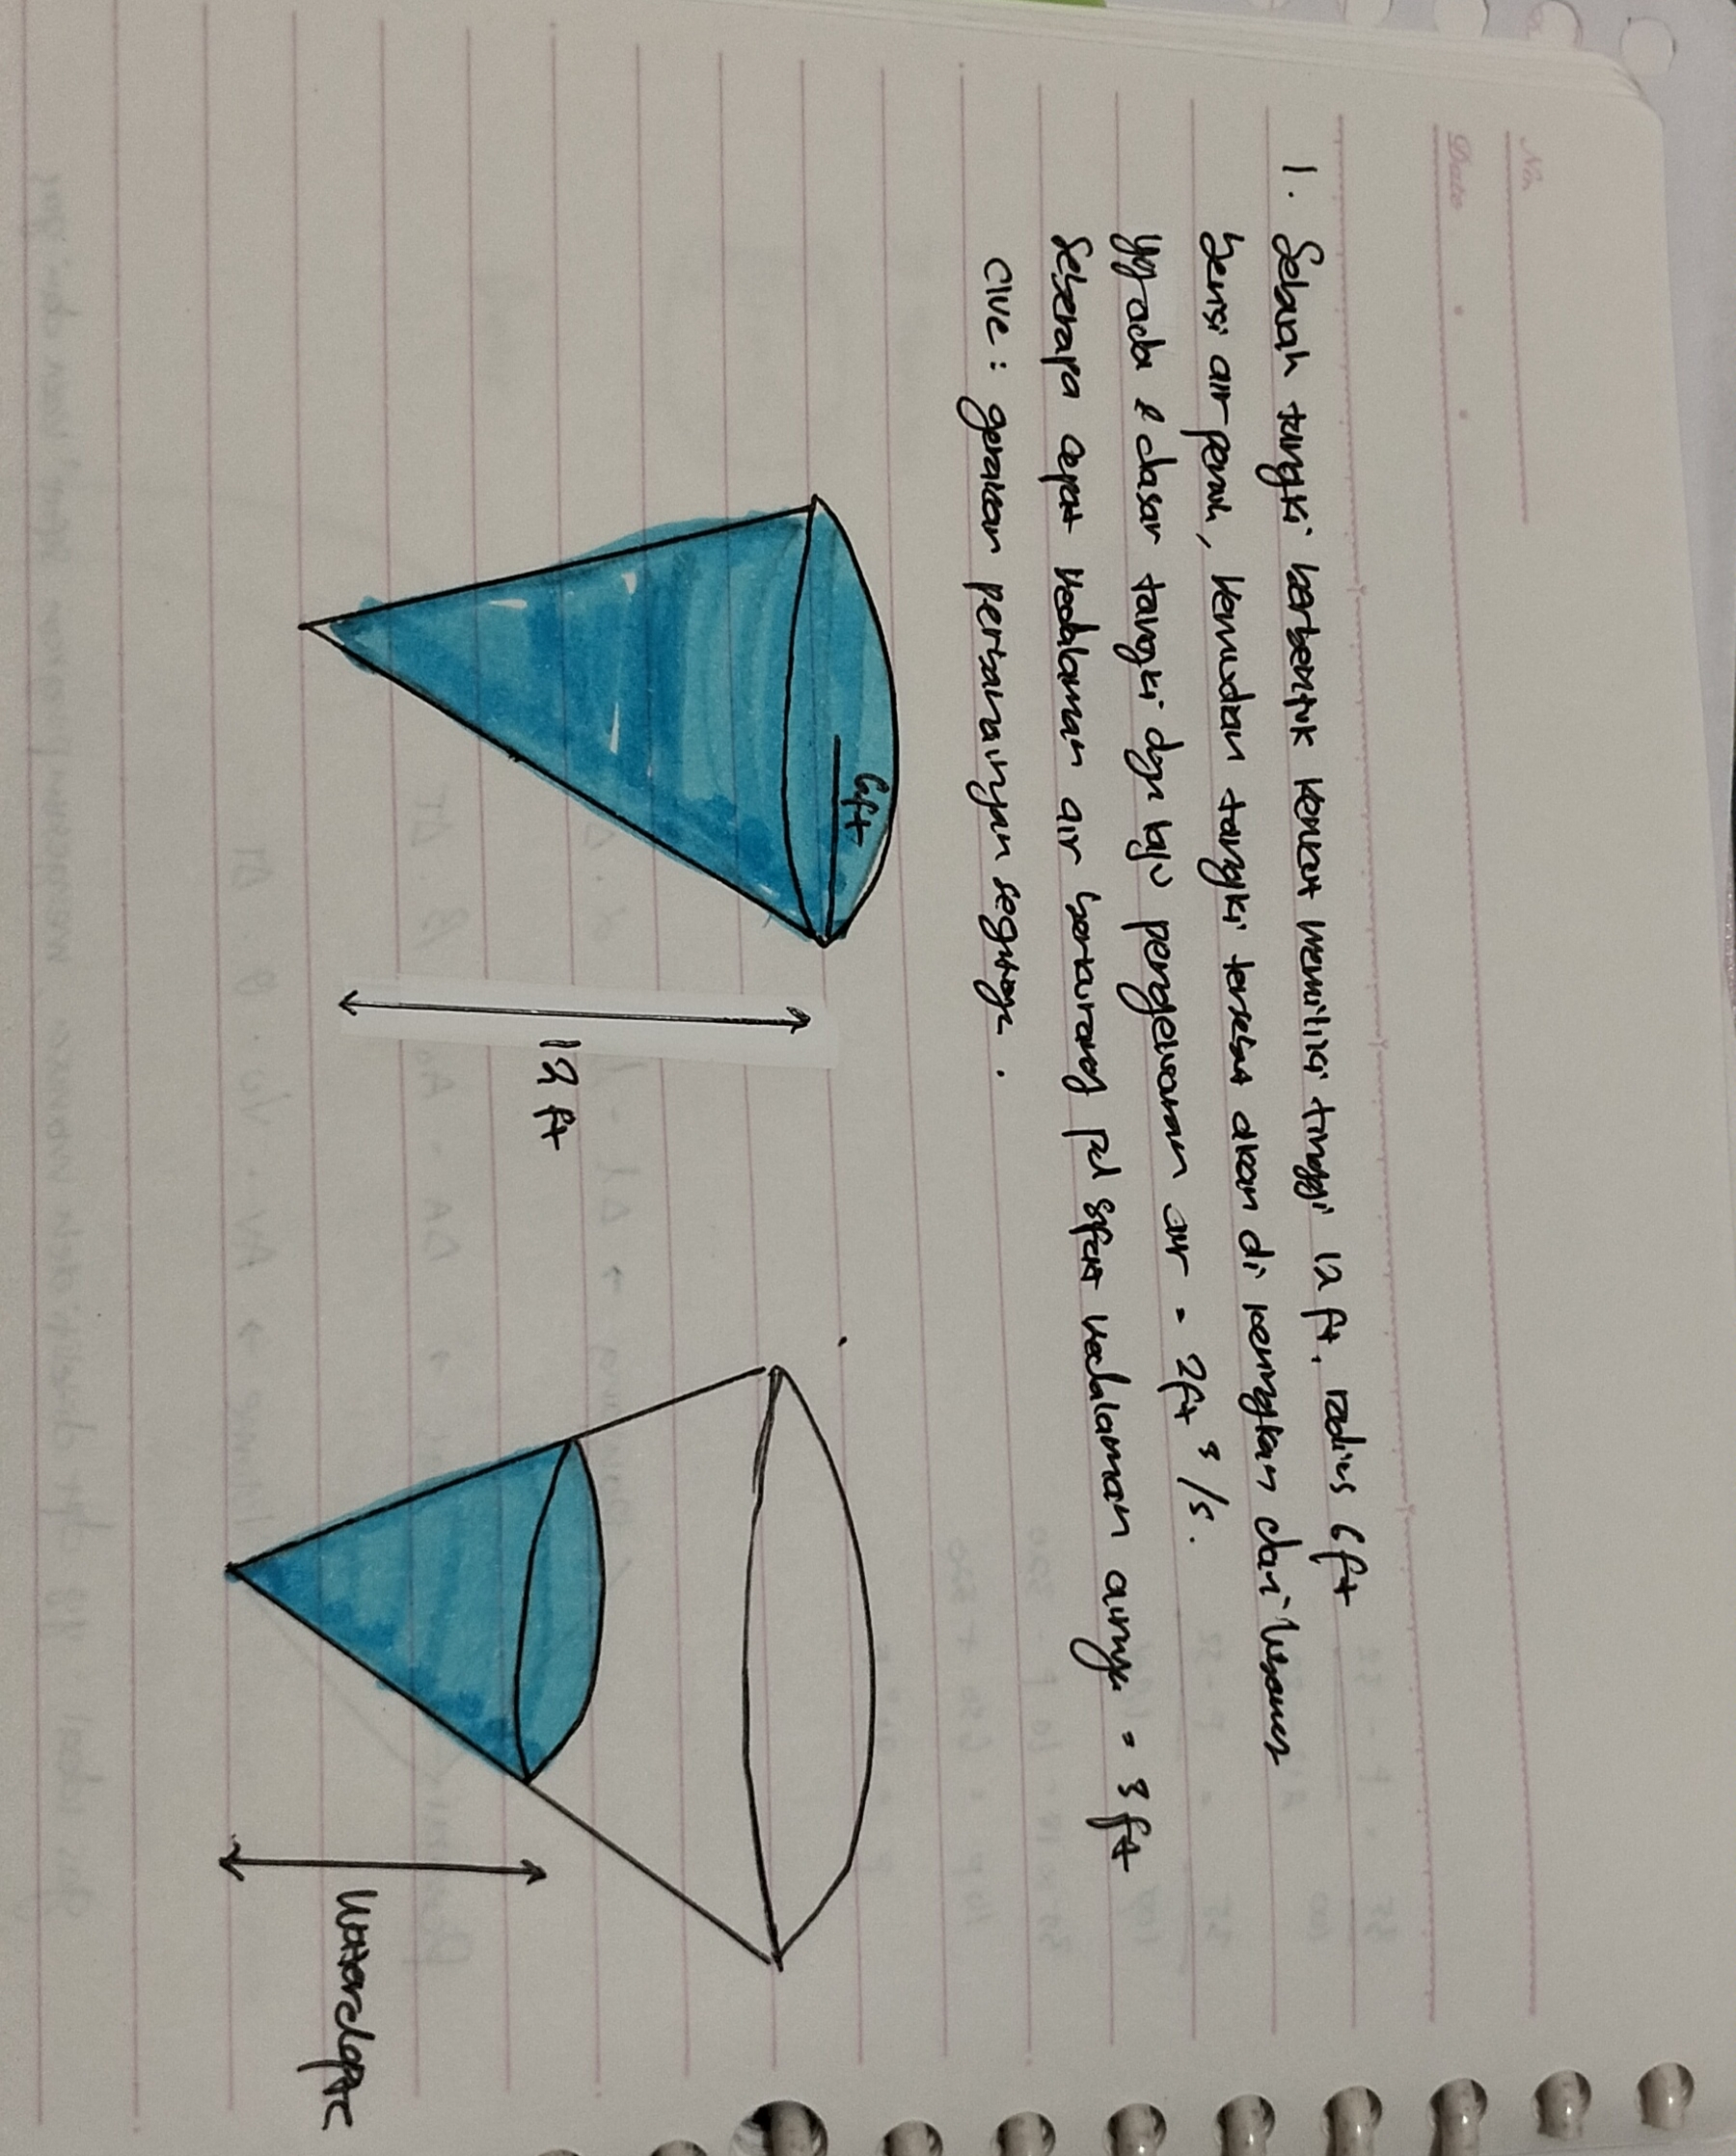 No.
Date
1. Sebuah tangki berbentuk kerucut memiliki tinggi 12 ft, radius 6 ft
berisi air penuh, kemudian tangki tersebut akan di keringkan dari lubang
yg ada di dasar tangki dgn laju pengeluaran air = 2 ft³/s.
Seberapa cepat kedalaman air berkurang pd saat kedalaman airnya = 3 ft
Clue : gunakan persamaan segitiga.
6ft
12 ft